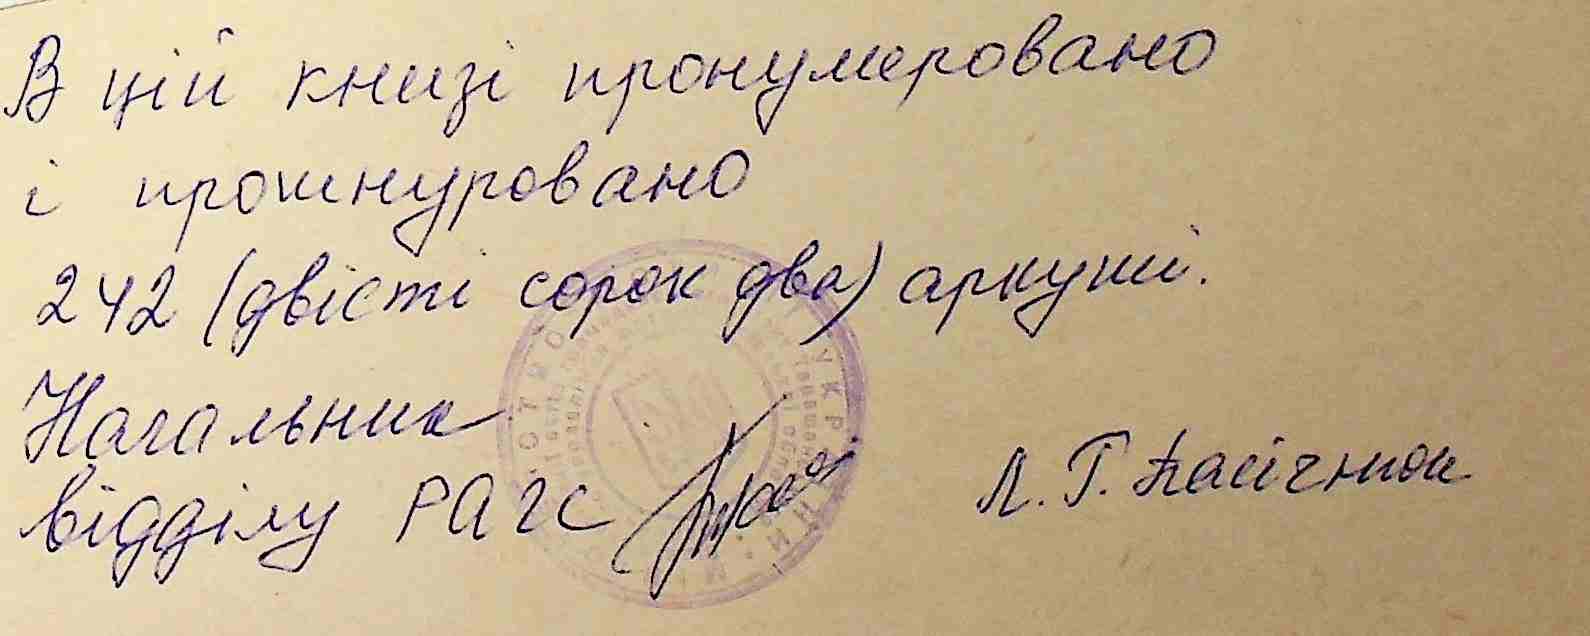 В цій книзі пронумеровано
і прошнуровано
242 (двісті сорок два) аркуші.
Начальник
відділу РАГС Л. Г. Пасічнюк